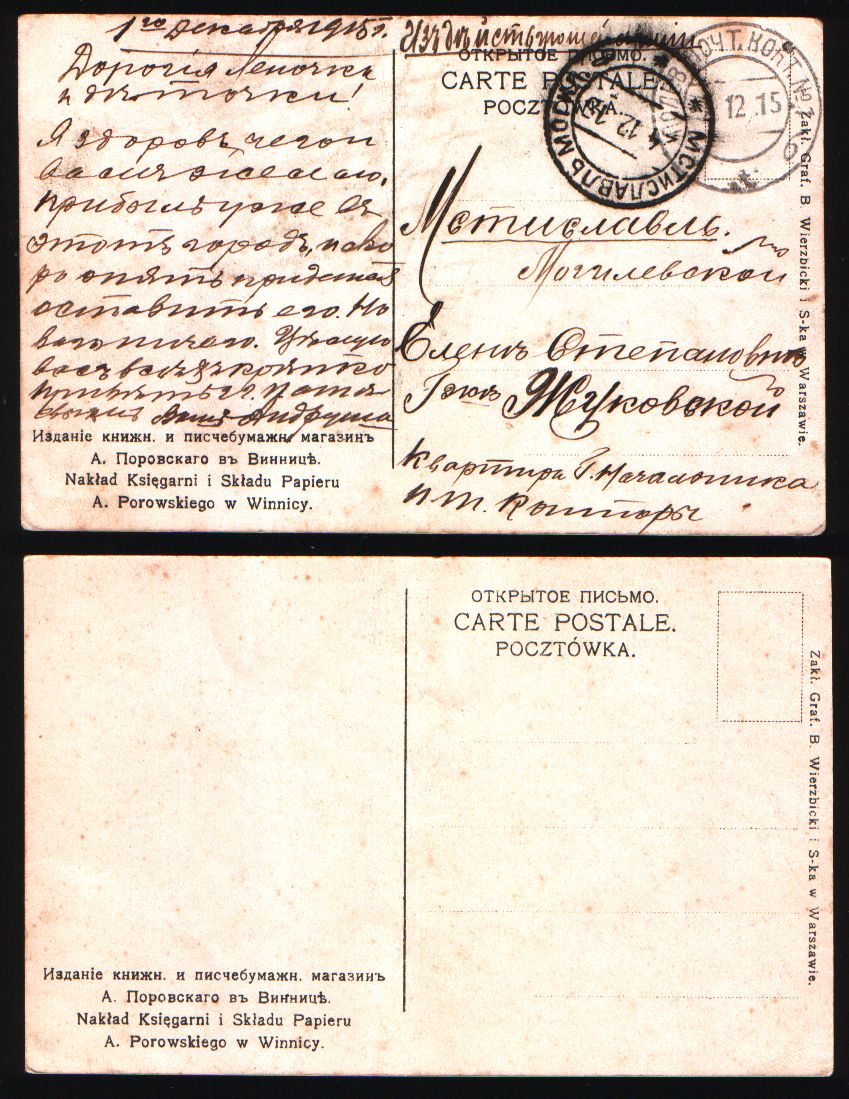 1го Декабря 1915 г.
Дорогія Леночка
и дѣточки!
Я здоровъ, чего и
Вамъ желаю.
Прибылъ уже въ
этотъ городъ, и ско
ро опять придется
оставить его. Но
ваго ничего. Цѣлую
васъ всѣхъ крѣпко
Вашъ Андруша
Изъ дѣйствующей арміи
ОТКРЫТОЕ ПИСЬМО.
CARTE POSTALE.
POCZTÓWKA.
МСТИСЛАВЛЬ МОГИЛ
4 12 15
ПОЧТ. КОНТ. №
12.15
Мстиславль.
Могилевской
Еленѣ Степановнѣ
Гжѣ Жуковской
Квартира Г. Начальника
п. т. Конторы
Zakł. Graf. B. Wierzbicki i S-ka w Warszawie.
Изданіе книжн. и писчебумажн. магазинъ
А. Поровскаго въ Винницѣ.
Nakład Księgarni i Składu Papieru
A. Porowskiego w Winnicy.
ОТКРЫТОЕ ПИСЬМО.
CARTE POSTALE.
POCZTÓWKA.
Zakł. Graf. B. Wierzbicki i S-ka w Warszawie.
Изданіе книжн. и писчебумажн. магазинъ
А. Поровскаго въ Винницѣ.
Nakład Księgarni i Składu Papieru
A. Porowskiego w Winnicy.